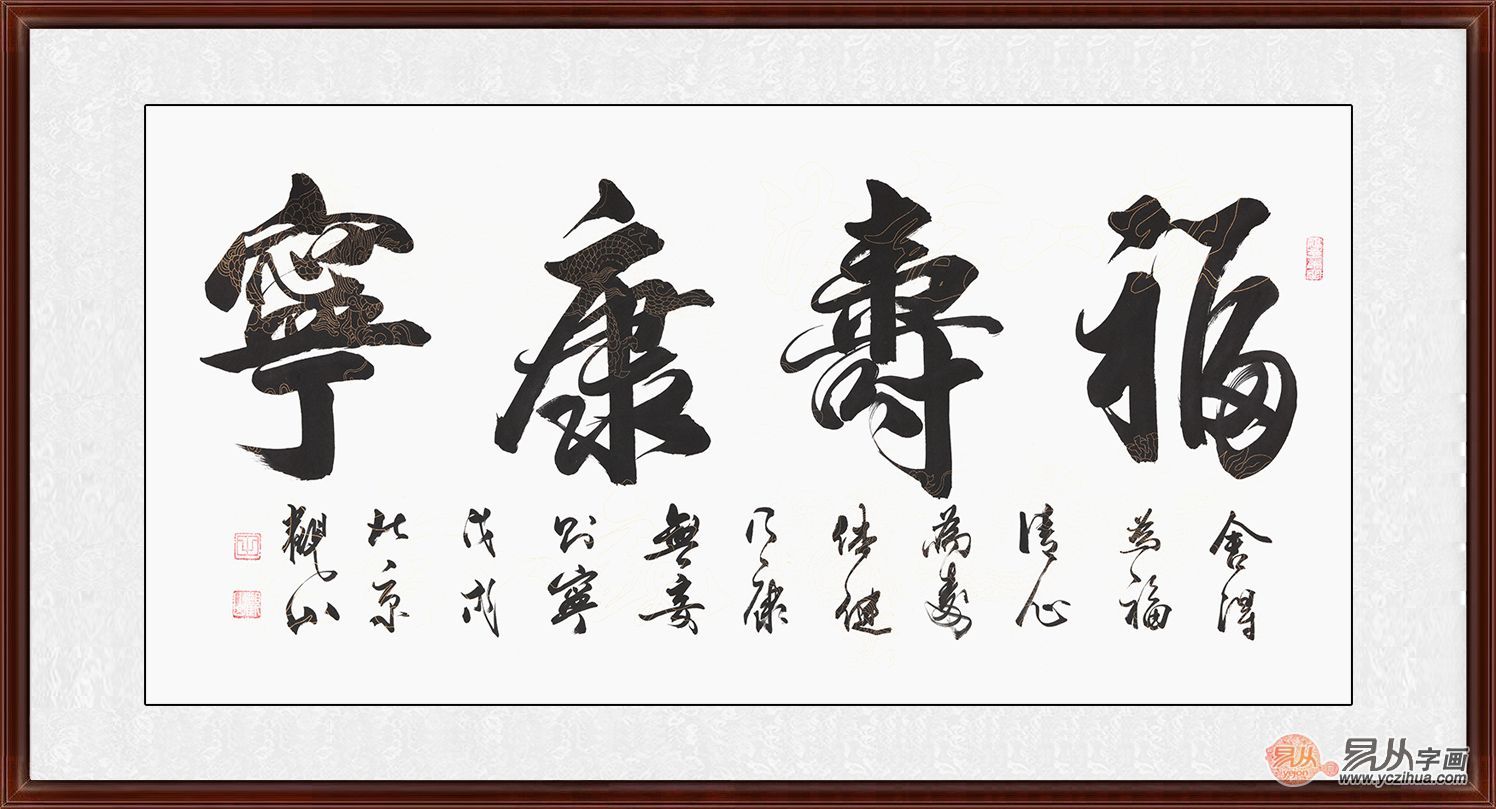 福壽康寧
舍得
为福
清心
為壽
体健
乃康
無妄
則寧
戊戌
北京
觀山
易从
yicon
易从字画
www.yczihua.com